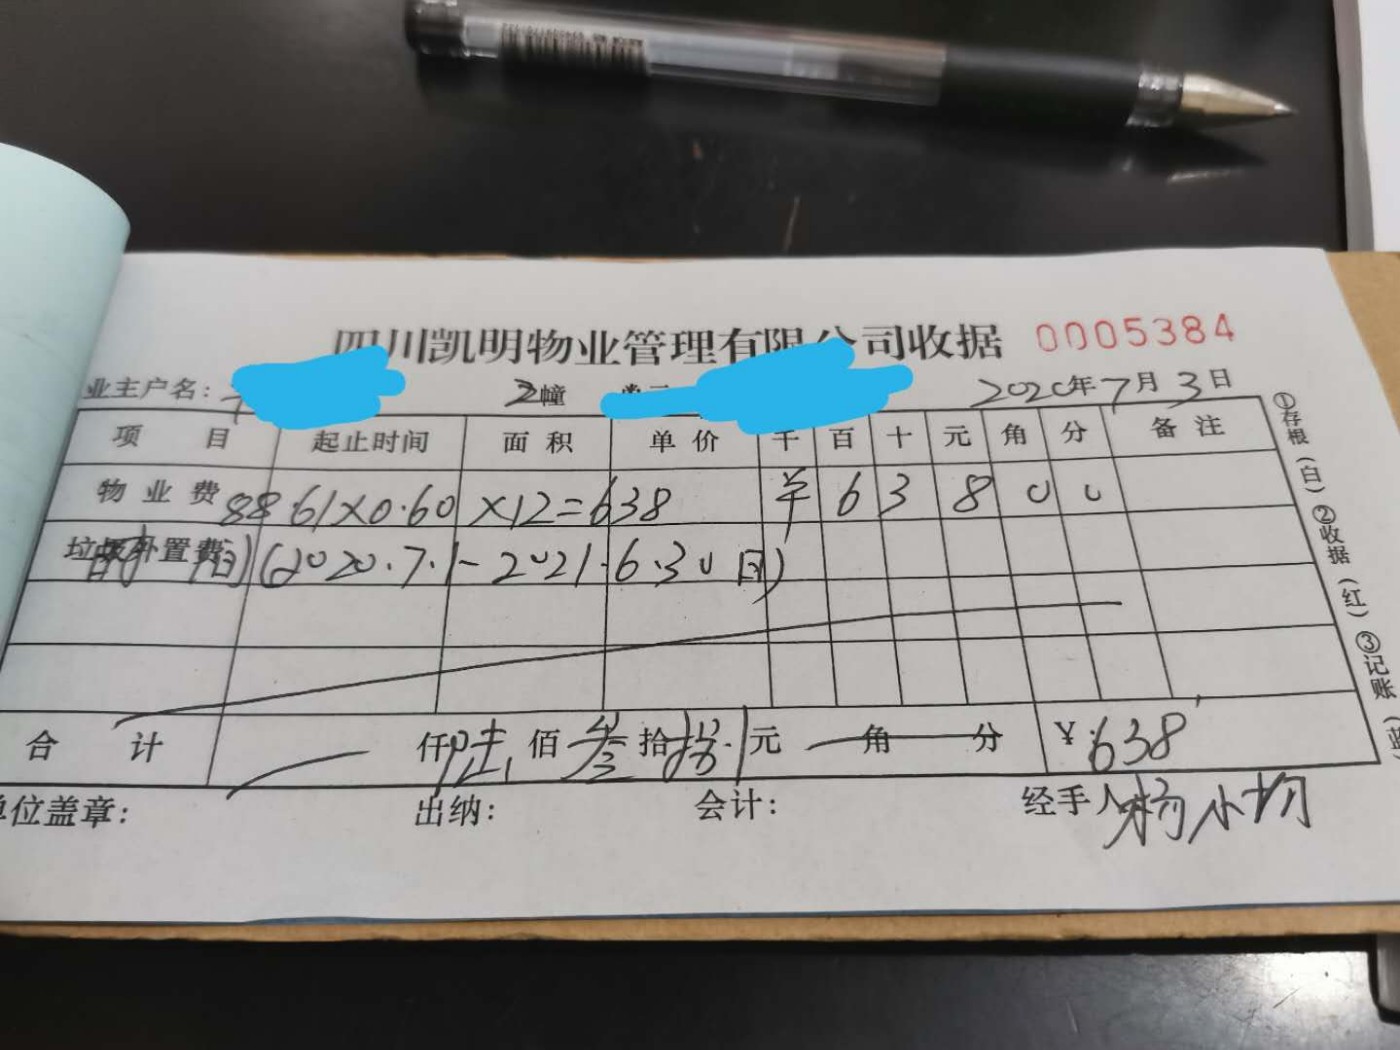 四川凯明物业管理有限公司收据 0005384
业主户名: 2幢 2020年7月3日
项目 起止时间 面积 单价 千 百 十 元 角 分 备注
物业费 88.61×0.60×12=638 ¥ 6 3 8 0 0
垃圾处置费 时间(2020.7.1-2021.6.30日)
合计 仟陆佰叁拾捌元 角 分 ¥:638
单位盖章: 出纳: 会计: 经手人
①存根(白)②收据(红)③记账(蓝